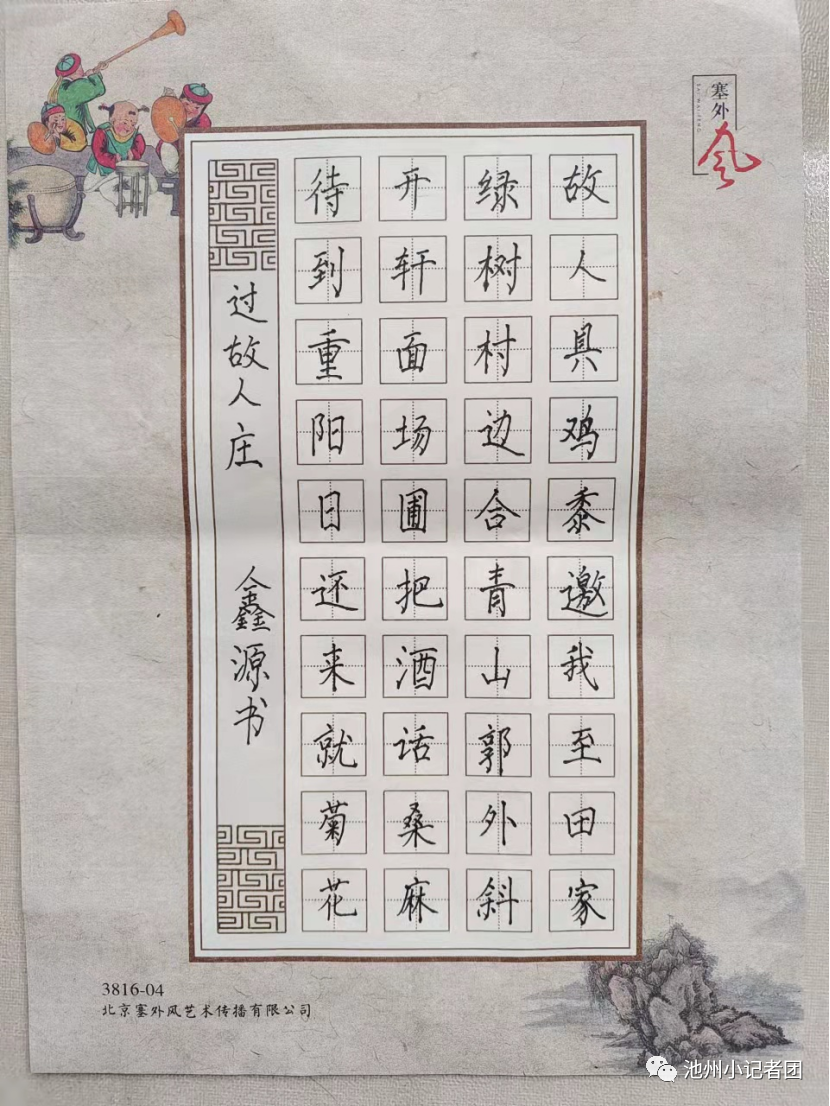 塞外风
故人具鸡黍邀我至田家
绿树村边合青山郭外斜
开轩面场圃把酒话桑麻
待到重阳日还来就菊花
过故人庄 鑫源书
3816-04
北京塞外风艺术传播有限公司
池州小记者团